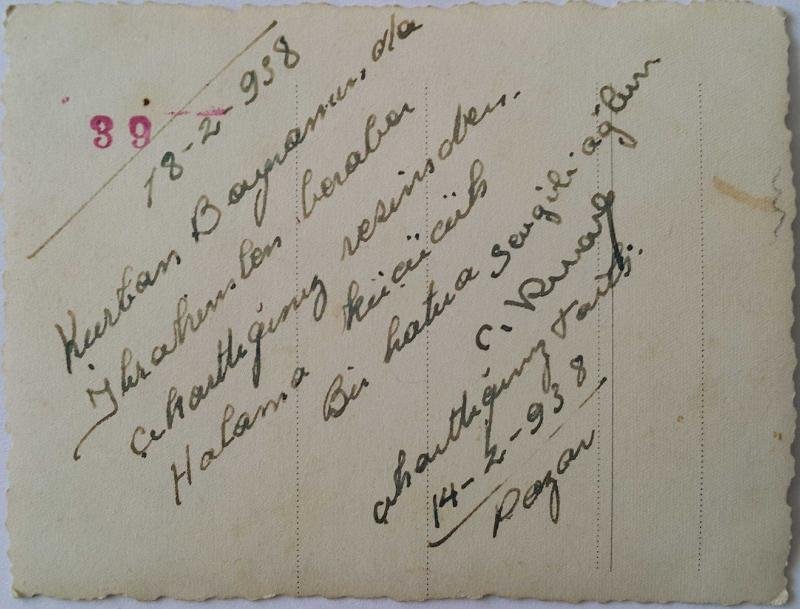 39
18-2-938
Kurban Bayramında
İbrahimlen beraber
çıkarttığımız resimden.
Halama küçücük
Bir hatıra sevgili oğlun
C.
çıkarttığımız tarih.
14-2-938
Pazar